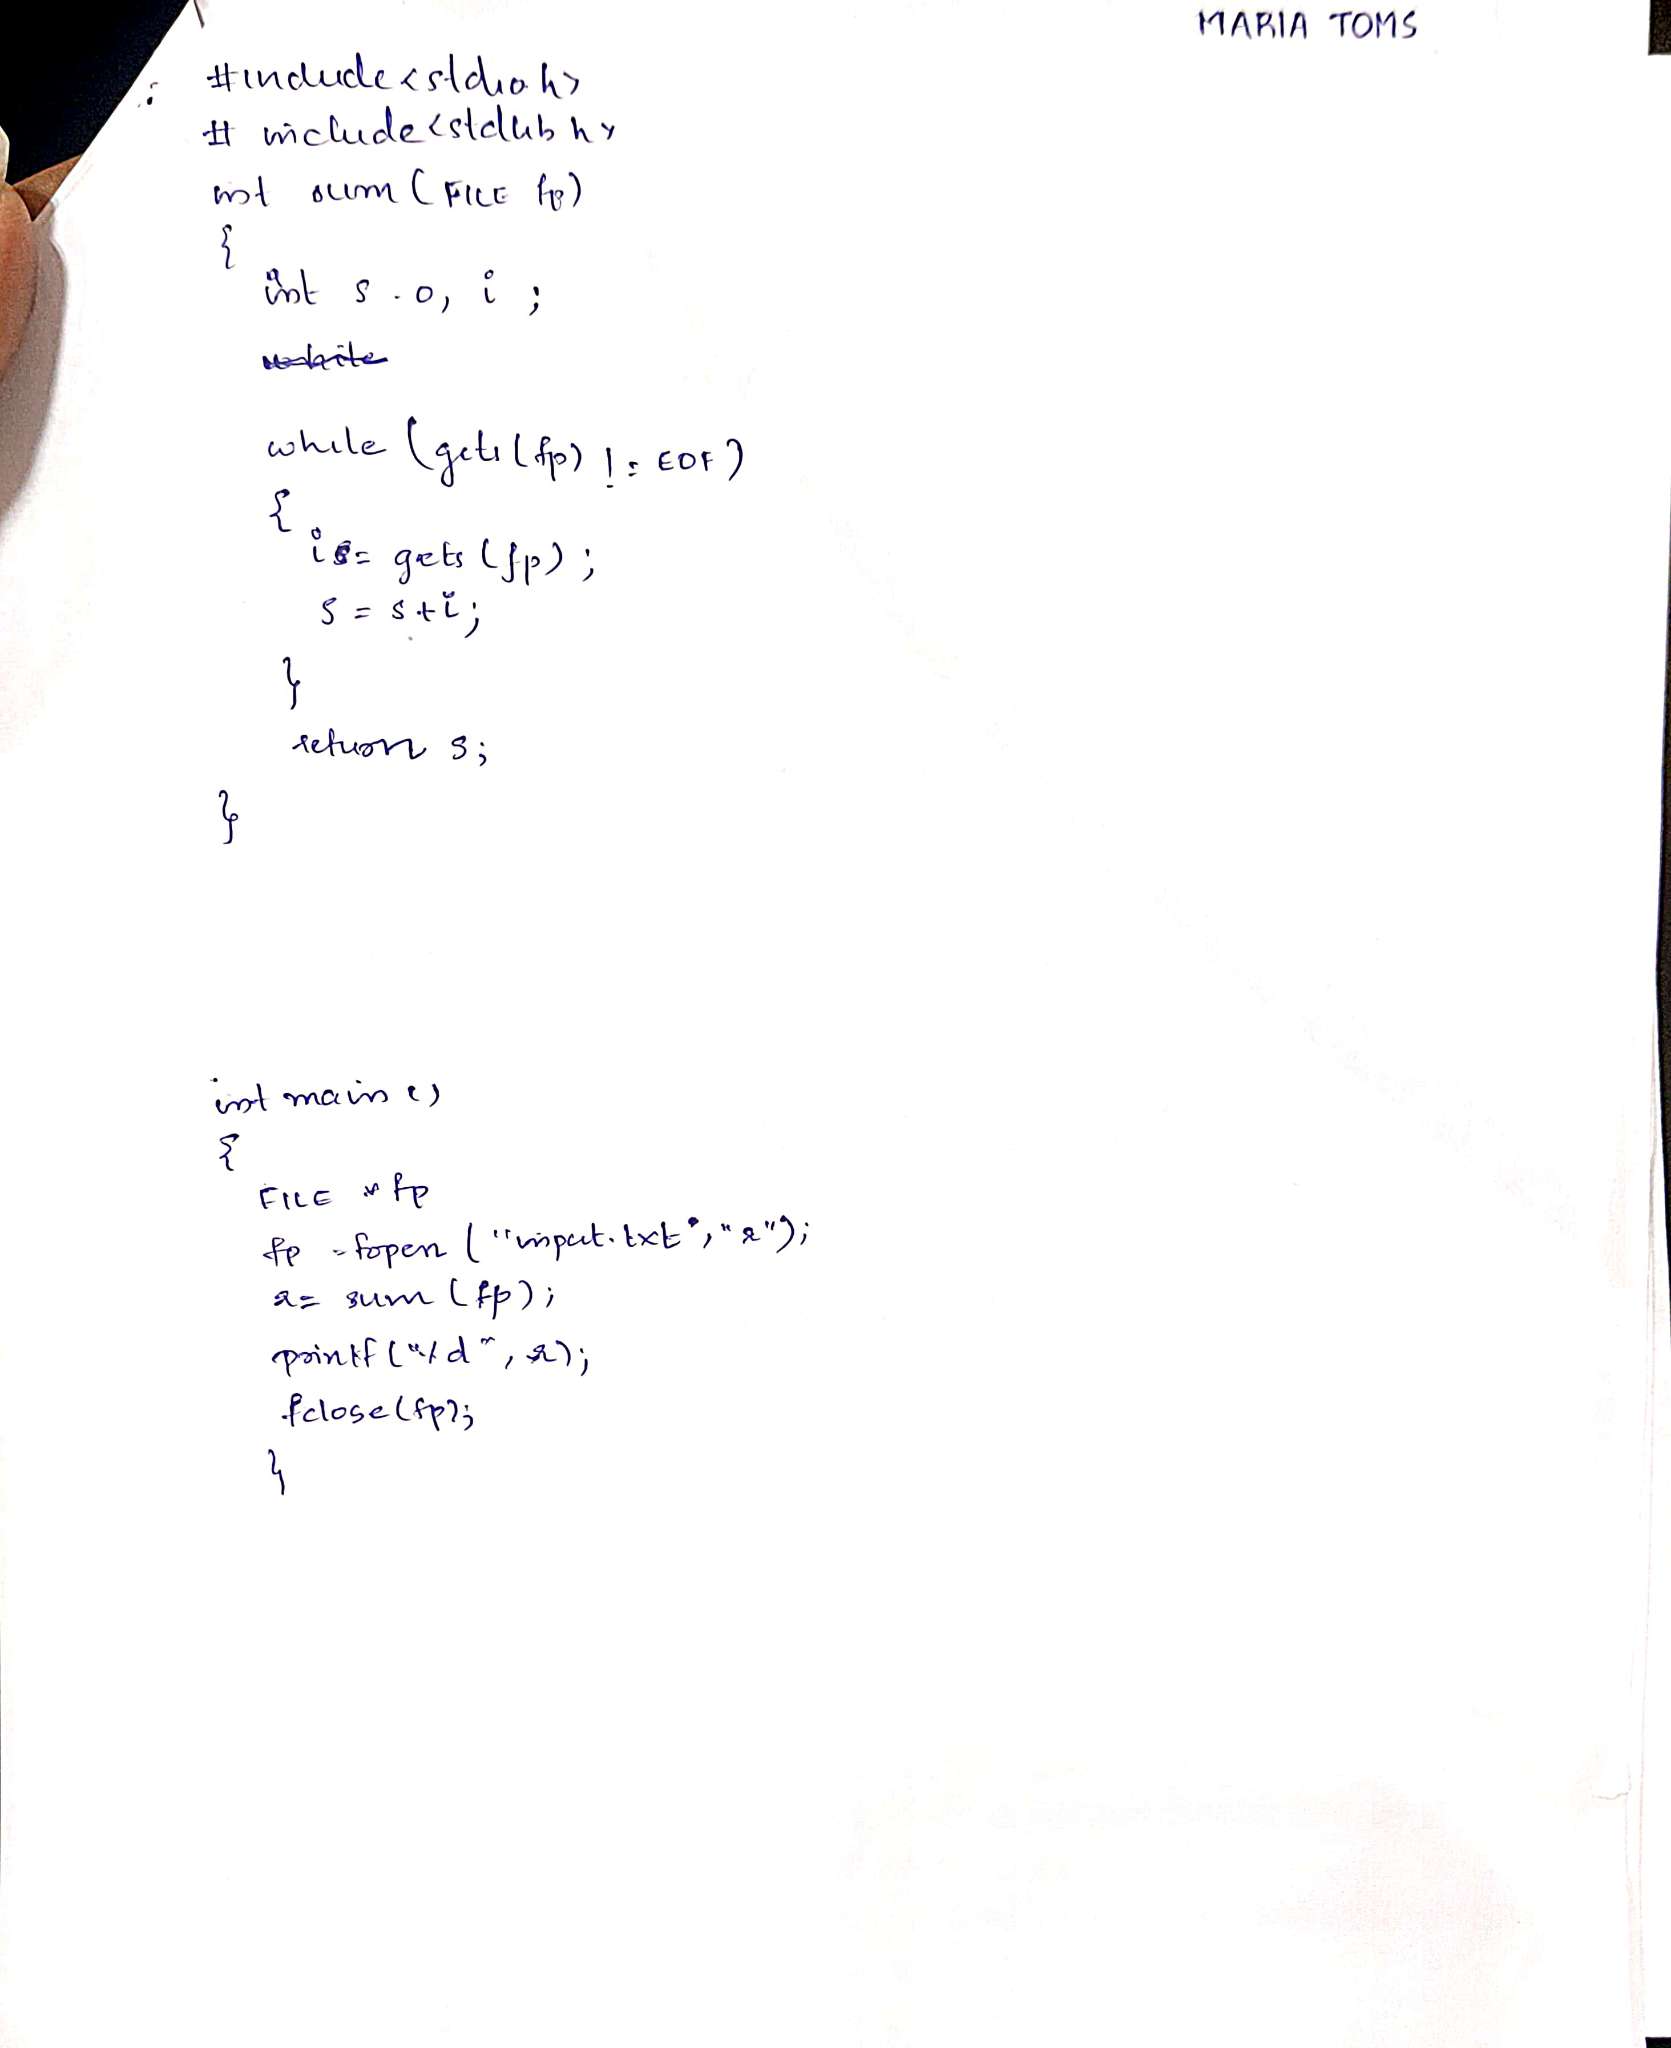 MARIA TOMS
#include<stdio.h>
# include<stdlib.h>
int sum (FILE fp)
{
int s = 0, i ;
while (gets(fp) != EOF)
{
i = gets (fp) ;
s = s+i;
}
return s;
}
int main ()
{
FILE * fp
fp = fopen ("input.txt", "r");
r= sum (fp);
printf("%d", r);
fclose(fp);
}